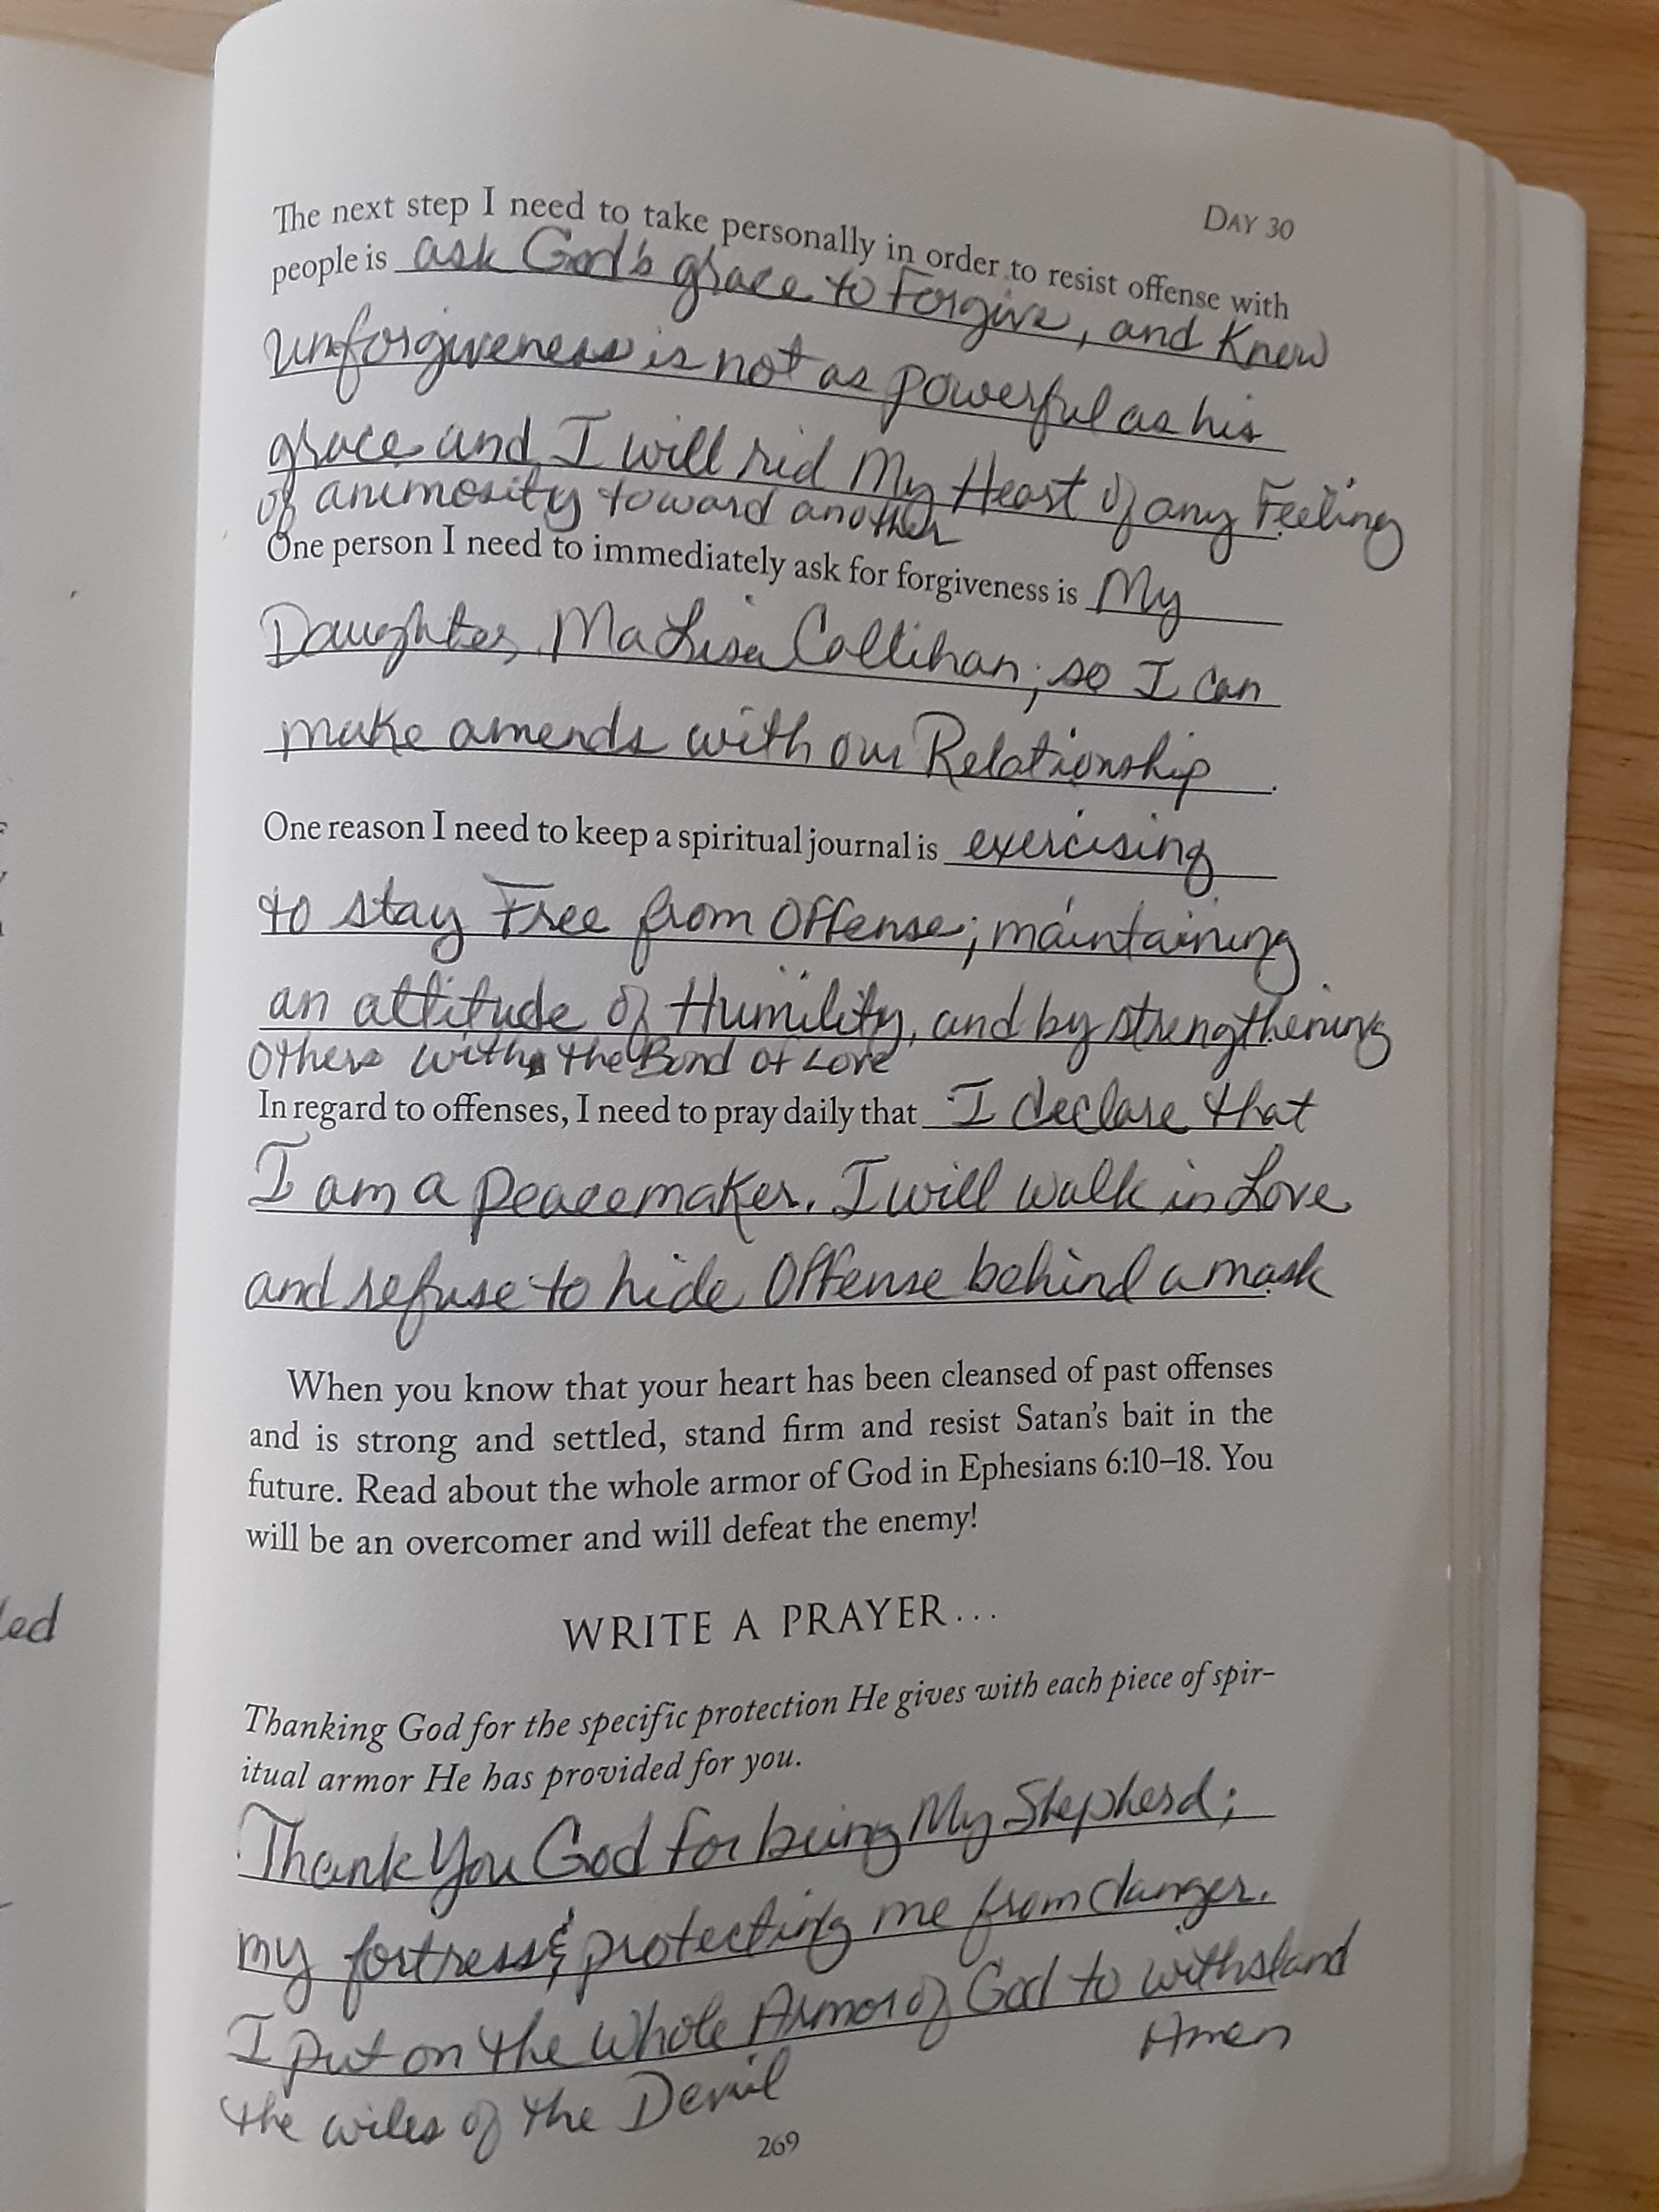 DAY 30
The next step I need to take personally in order to resist offense with
people is ask God's grace to Forgive, and Know
unforgiveness is not as powerful as his
grace and I will rid My Heart of any Feeling
of animosity toward another
One person I need to immediately ask for forgiveness is My
Daughter, MaLisa Collihan; so I can
make amends with our Relationship.
One reason I need to keep a spiritual journal is exercising
to stay Free from Offense; maintaining
an attitude of Humility, and by strengthening
Others with the Bond of Love
In regard to offenses, I need to pray daily that I declare that
I am a peacemaker. I will walk in Love
and refuse to hide Offense behind a mask
When you know that your heart has been cleansed of past offenses
and is strong and settled, stand firm and resist Satan's bait in the
future. Read about the whole armor of God in Ephesians 6:10–18. You
will be an overcomer and will defeat the enemy!
led
WRITE A PRAYER...
Thanking God for the specific protection He gives with each piece of spir-
itual armor He has provided for you.
Thank You God for being My Shepherd;
my fortress & protecting me from danger.
I put on the Whole Armor of God to withstand
the wiles of the Devil Amen
269